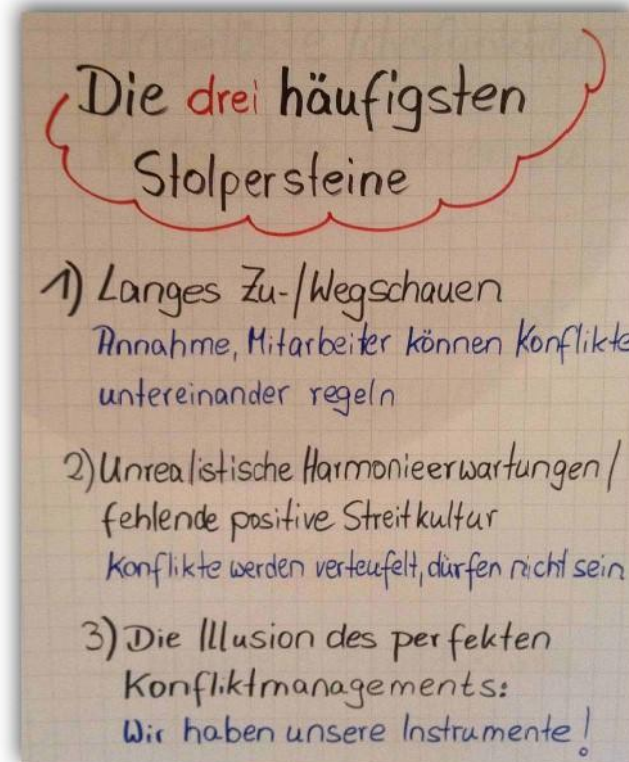 Die drei häufigsten
Stolpersteine
1) Langes Zu-/Wegschauen
Annahme, Mitarbeiter können Konflikte
untereinander regeln
2) Unrealistische Harmonieerwartungen/
fehlende positive Streitkultur
Konflikte werden verteufelt, dürfen nicht sein
3) Die Illusion des perfekten
Konfliktmanagements:
Wir haben unsere Instrumente!